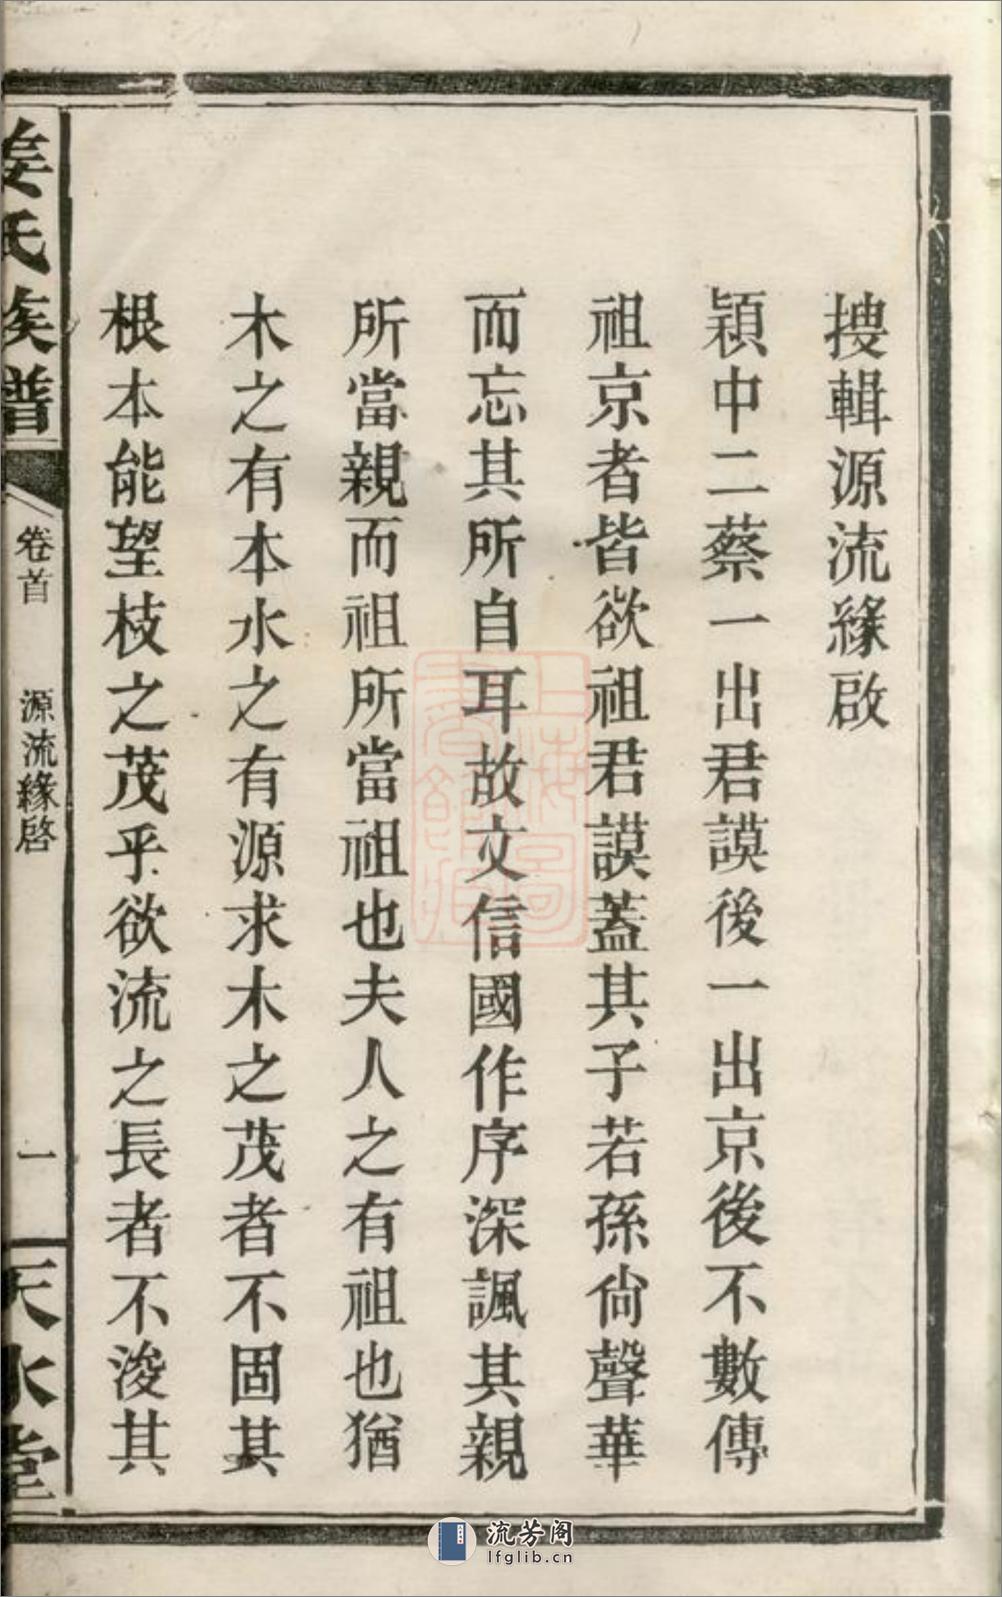 搜輯源流緣啟
穎中二蔡一出君謨後一出京後不數傳
祖京者皆欲祖君謨蓋其子若孫尙聲華
而忘其所自耳故文信國作序深諷其親
所當親而祖所當祖也夫人之有祖也猶
木之有本水之有源求木之茂者不固其
根本能望枝之茂乎欲流之長者不浚其
姜氏族譜
卷首
源流緣啓
一
天水堂
上海圖書館藏
流芳阁
lfglib.cn